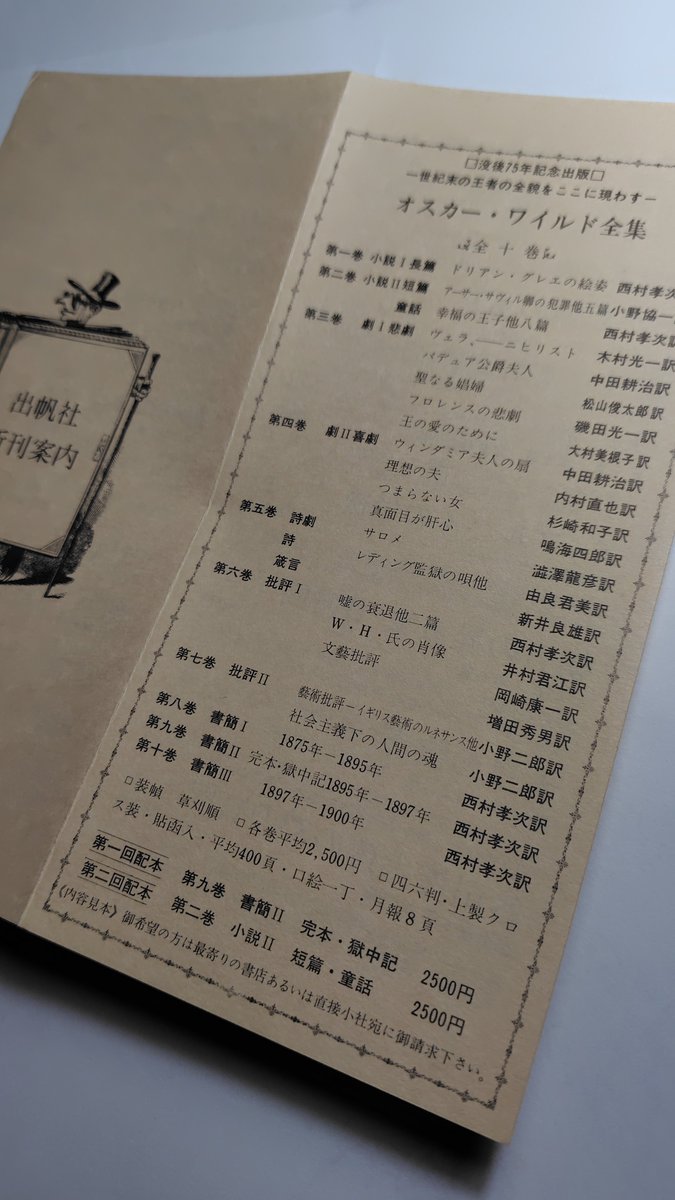 出帆社
新刊案内
□没後75年記念出版□
―世紀末の王者の全貌をここに現わす―
オスカー・ワイルド全集
全十巻
第一巻 小説Ⅰ長篇 ドリアン・グレエの絵姿 西村孝次
第二巻 小説Ⅱ短篇 アーサー・サヴィル卿の犯罪他五篇 小野協一
童話 幸福の王子他八篇 西村孝次訳
第三巻 劇Ⅰ悲劇 ヴェラ、――ニヒリスト 木村光一訳
パデュア公爵夫人 中田耕治訳
聖なる娼婦 松山俊太郎訳
フロレンスの悲劇 磯田光一訳
王の愛のために 大村美根子訳
第四巻 劇Ⅱ喜劇 ウィンダミア夫人の扇 中田耕治訳
理想の夫 内村直也訳
つまらない女 杉崎和子訳
真面目が肝心 鳴海四郎訳
第五巻 詩劇 サロメ 澁澤龍彦訳
詩 レディング監獄の唄他 由良君美訳
箴言 新井良雄訳
第六巻 批評Ⅰ 嘘の衰退他二篇 西村孝次訳
W・H・氏の肖像 井村君江訳
文藝批評 岡崎康一訳
増田秀男訳
第七巻 批評Ⅱ 藝術批評―イギリス藝術のルネサンス他 小野二郎訳
社会主義下の人間の魂 小野二郎訳
第八巻 書簡Ⅰ 1875年―1895年 西村孝次訳
第九巻 書簡Ⅱ 完本・獄中記1895年―1897年 西村孝次訳
第十巻 書簡Ⅲ 1897年―1900年 西村孝次訳
□装幀 草刈順 □各巻平均2,500円 □四六判・上製クロ
ス装・貼函入・平均400頁・口絵一丁・月報8頁
第一回配本 第九巻 書簡Ⅱ 完本・獄中記 2500円
第二回配本 第二巻 小説Ⅱ 短篇・童話 2500円
《内容見本》御希望の方は最寄りの書店あるいは直接小社宛に御請求下さい。